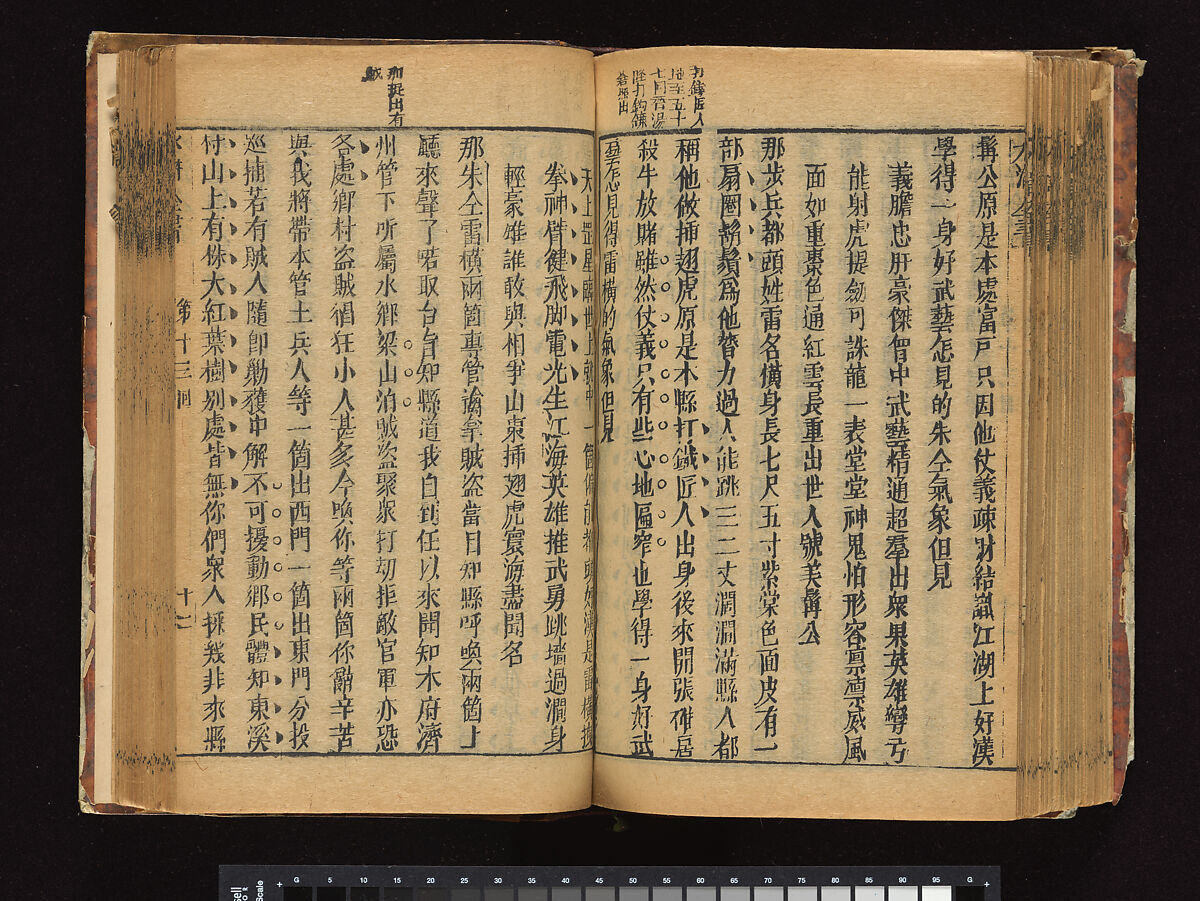 打鐵匠人
直至五十
七回有湯
隆打鈎鎌
鎗照出
髯公原是本處富戶只因他仗義疎財結識江湖上好漢
學得一身好武藝怎見的朱仝氣象但見
義膽忠肝豪傑胷中武藝精通超羣出衆果英雄彎弓
能射虎提劒可誅龍一表堂堂神鬼怕形容凛凛威風
面如重棗色通紅雲長重出世人號美髯公
那步兵都頭姓雷名橫身長七尺五寸紫棠色面皮有一
部扇圈鬍鬚爲他膂力過人能跳三二丈濶澗滿縣人都
稱他做挿翅虎原是本縣打鐵匠人出身後來開張碓房
殺牛放賭雖然仗義只有些心地匾窄也學得一身好武
藝怎見得雷橫的氣象但見
那捉出有
賊
天上罡星臨世上就中一箇偏能都頭好漢是雷橫拽
拳神臂健飛脚電光生江海英雄推武勇跳墻過澗身
輕豪雄誰敢與相爭山東挿翅虎寰海盡聞名
那朱仝雷橫兩箇專管擒拿賊盗當日知縣呼喚兩箇上
廳來聲了喏取台旨知縣道我自到任以來聞知本府濟
州管下所屬水鄉梁山泊賊盗聚衆打刼拒敵官軍亦恐
各處鄉村盗賊猖狂小人甚多今喚你等兩箇你辭辛苦
與我將帶本管土兵人等一箇出西門一箇出東門分投
巡捕若有賊人隨即勦獲申解不可擾動鄉民體知東溪
村山上有株大紅葉樹別處皆無你們衆人採幾非來縣
水滸全書 第十三囘 十七